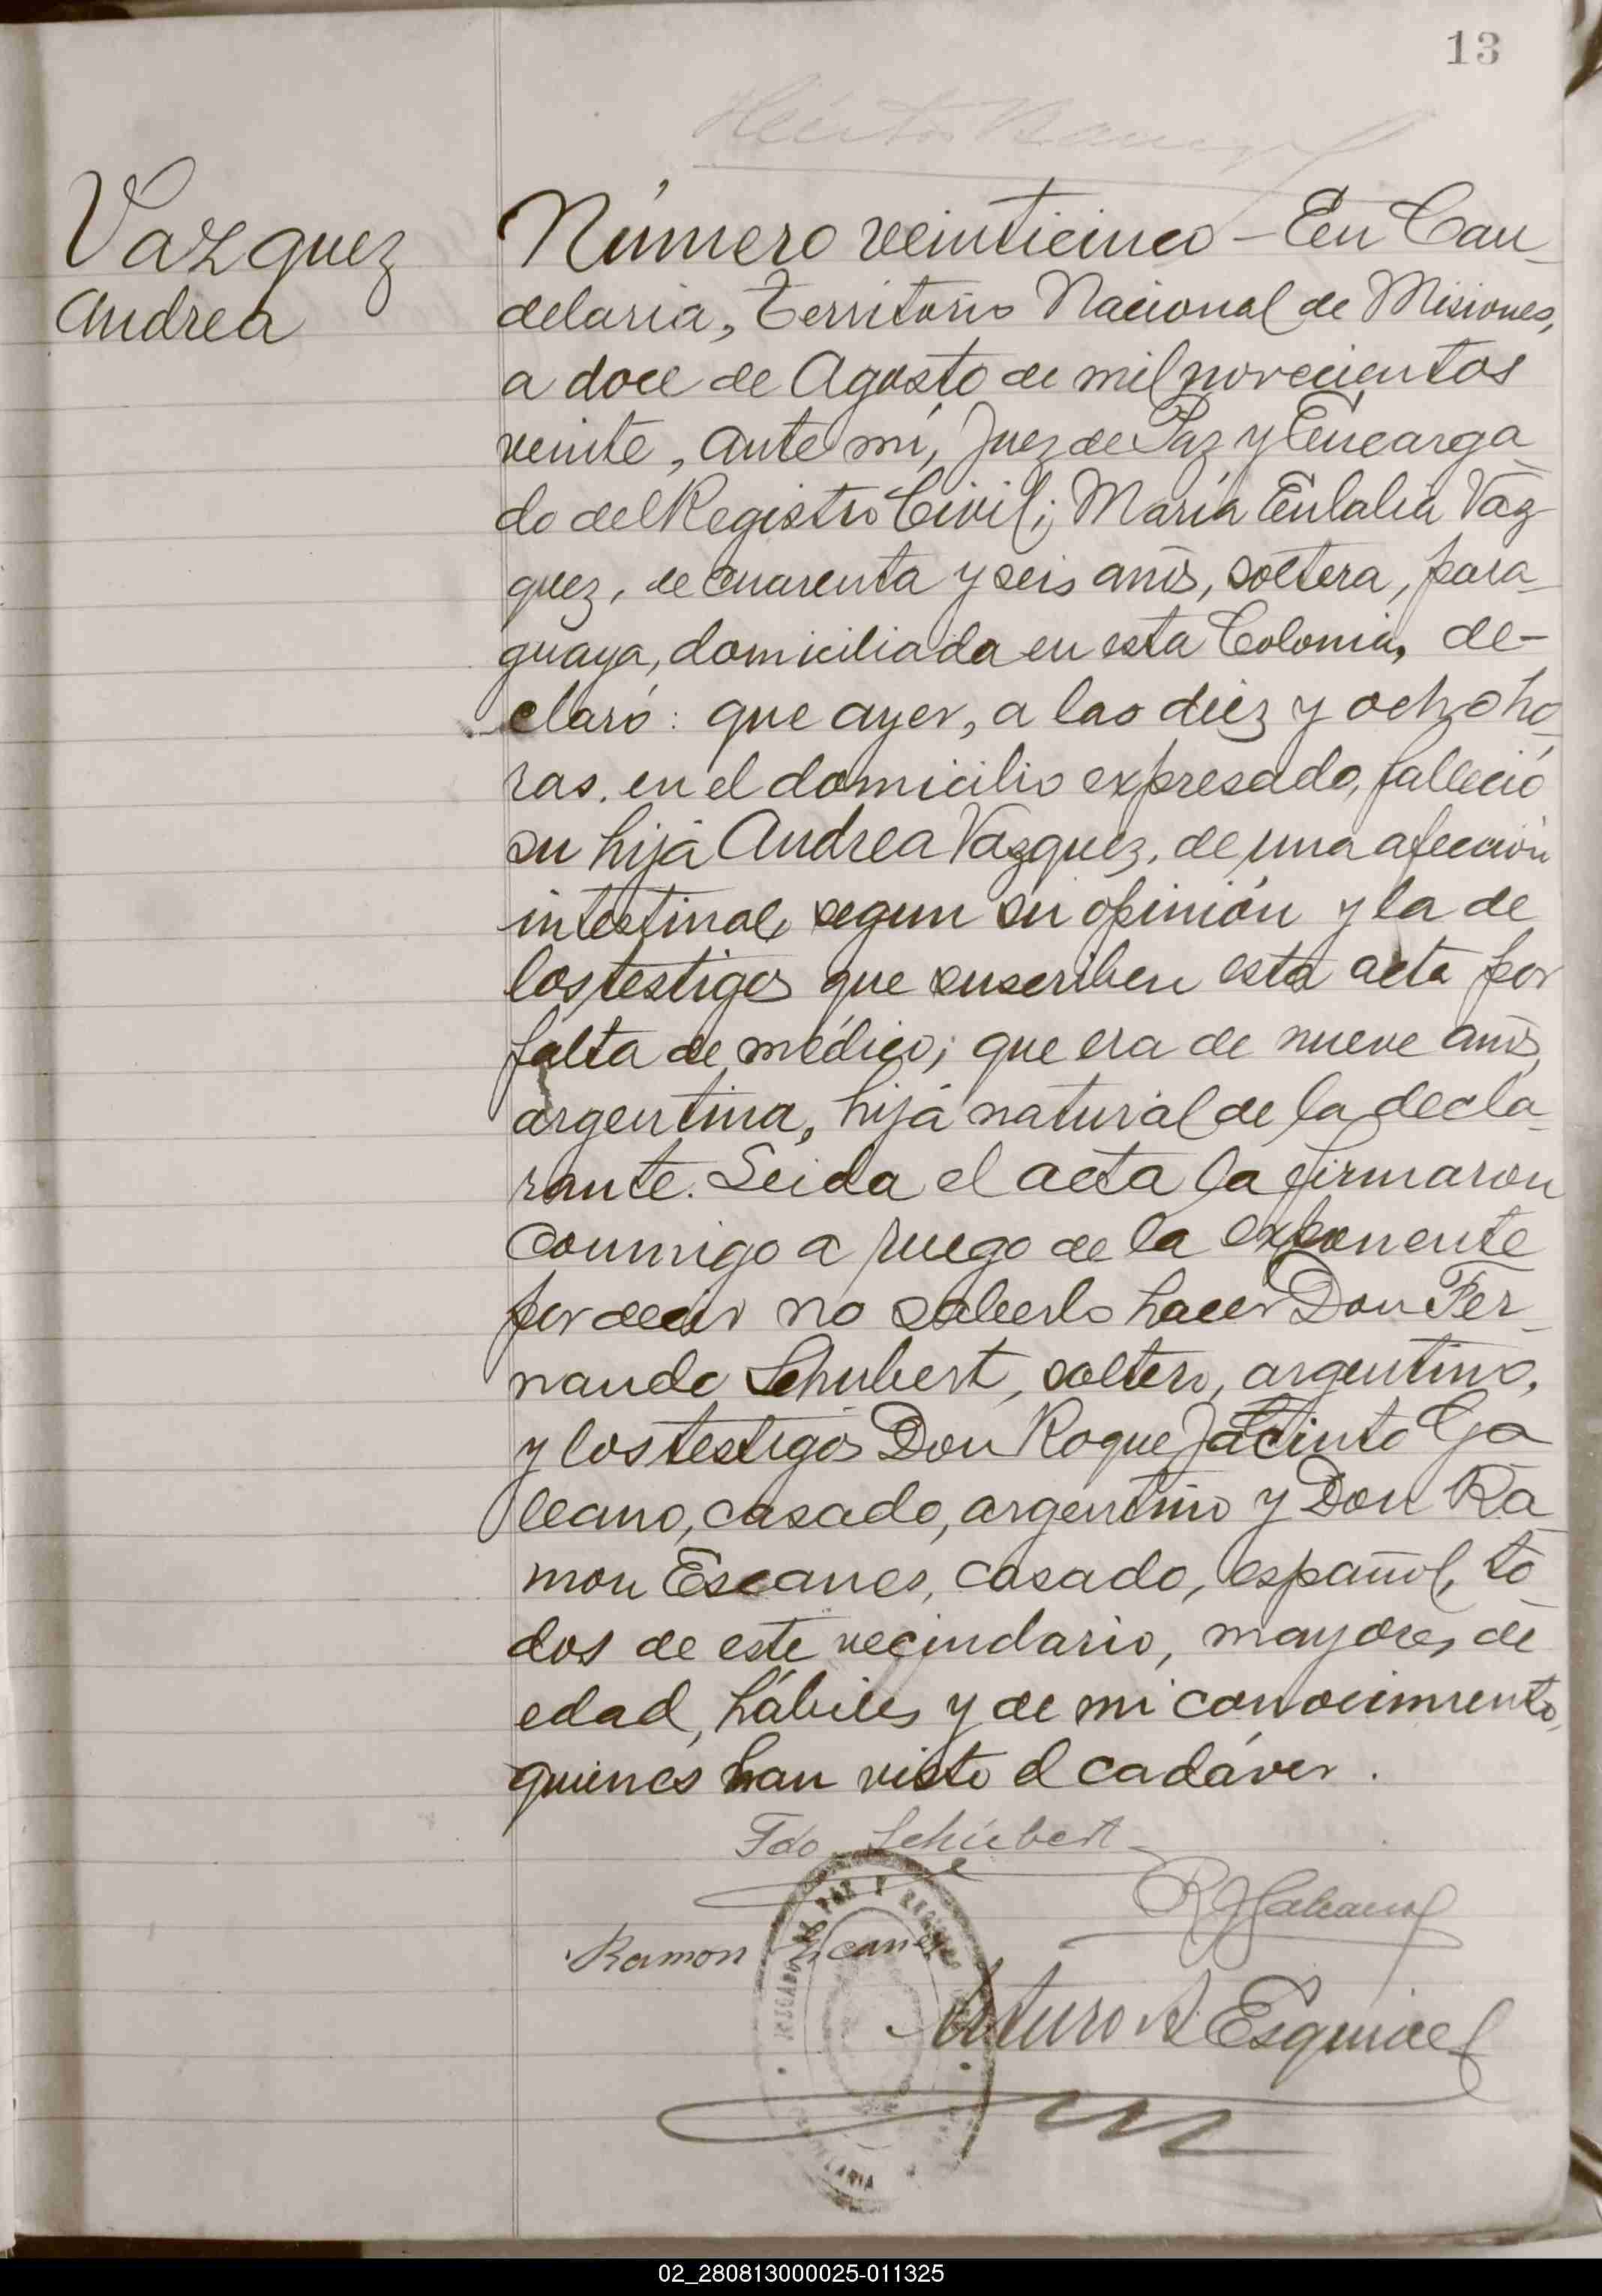 13
Vazquez
Andrea
Número veinticinco - En Can-
delaria, Territorio Nacional de Misiones,
a doce de Agosto de mil novecientos
veinte, ante mí, Juez de Paz y Encarga-
do del Registro Civil; María Eulalia Váz-
quez, de cuarenta y seis años, soltera, para-
guaya, domiciliada en esta Colonia, de-
claró: que ayer, a las diez y ocho ho-
ras, en el domicilio expresado, falleció
su hija Andrea Vazquez, de una afección
intestinal, segun su opinión y la de
los testigos que suscriben esta acta por
falta de médico; que era de nueve años,
argentina, hija natural de la decla-
rante. Leida el acta la firmaron
conmigo a ruego de la exponente
por decir no saberlo hacer Don Fer-
nando Schubert, soltero, argentino,
y los testigos Don Roque Jacinto Ga-
leano, casado, argentino y Don Ra-
mon Escanes, casado, español, to-
dos de este vecindario, mayores de
edad, hábiles y de mi conocimiento,
quienes han visto el cadáver.
Fdo. Schubert
R J Galeano
Ramon Escanes
Arturo A Esquivel
JUZGADO DE PAZ Y REGISTRO
02_280813000025-011325